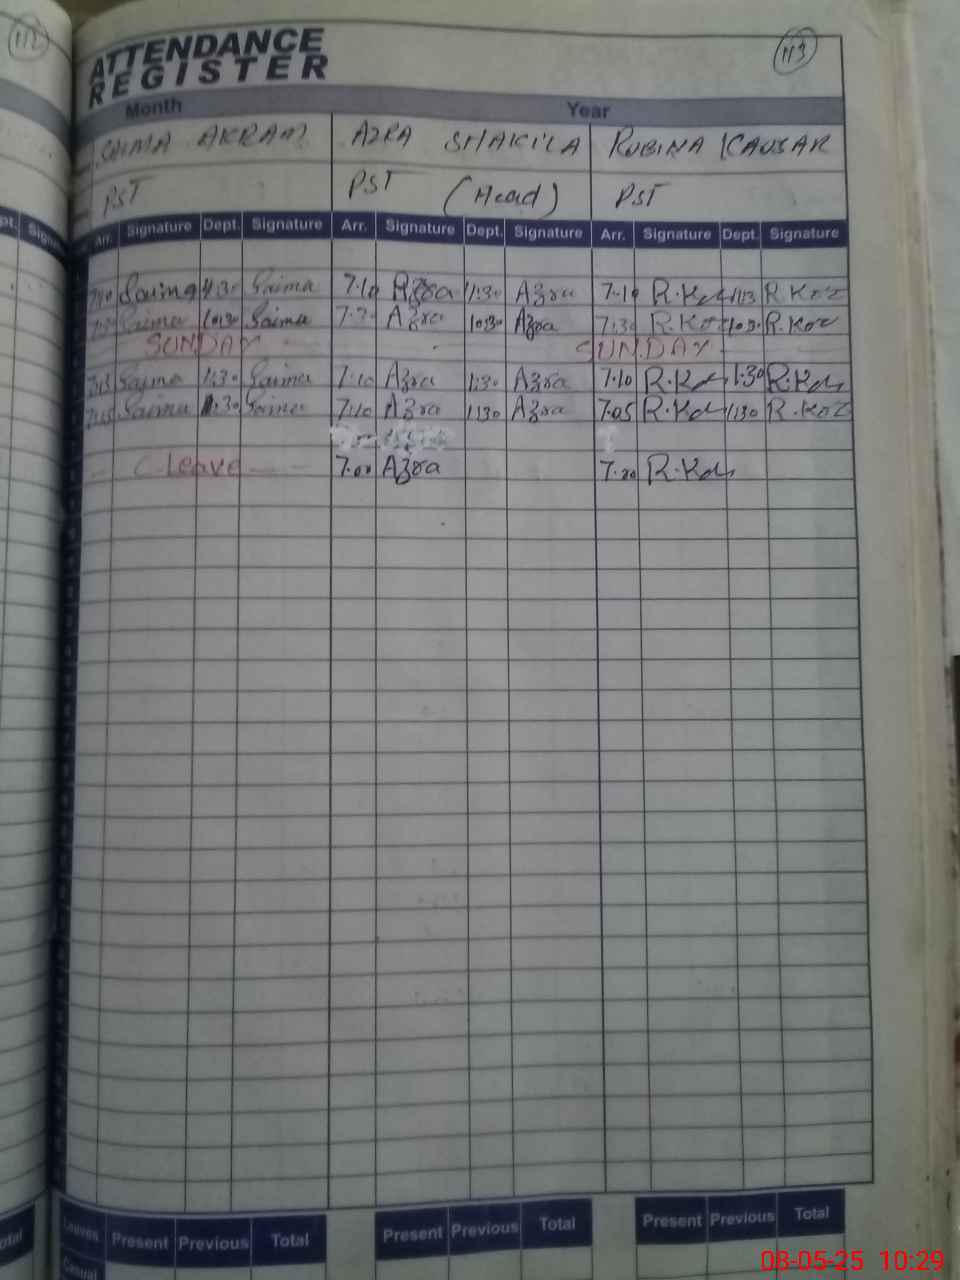 112
113
ATTENDANCE
REGISTER
Month Year
SAIMA AKRAM AZRA SHAKILA RUBINA KAUSAR
PST PST (Head) PST
Arr. Signature Dept. Signature Arr. Signature Dept. Signature Arr. Signature Dept. Signature
7:10 Saima 1:30 Saima 7.10 Azra 1:30 Azra 7.10 R.Kor 1:13 R.Kor
Saima 10:30 Saima Azra 10:30 Azra 7:30 R.Kor 10:30 R.Kor
SUNDAY SUNDAY
Saima 1:30 Saima 7.10 Azra 1:30 Azra 7.10 R.Kor 1:30 R.Kor
Saima 1:30 Saima 7.10 Azra 1130 Azra 7.05 R.Kor 1130 R.Kor
C.leave 7.00 Azra R.Kor
Leaves Present Previous Total Present Previous Total Present Previous Total
Casual
08-05-25 10:29